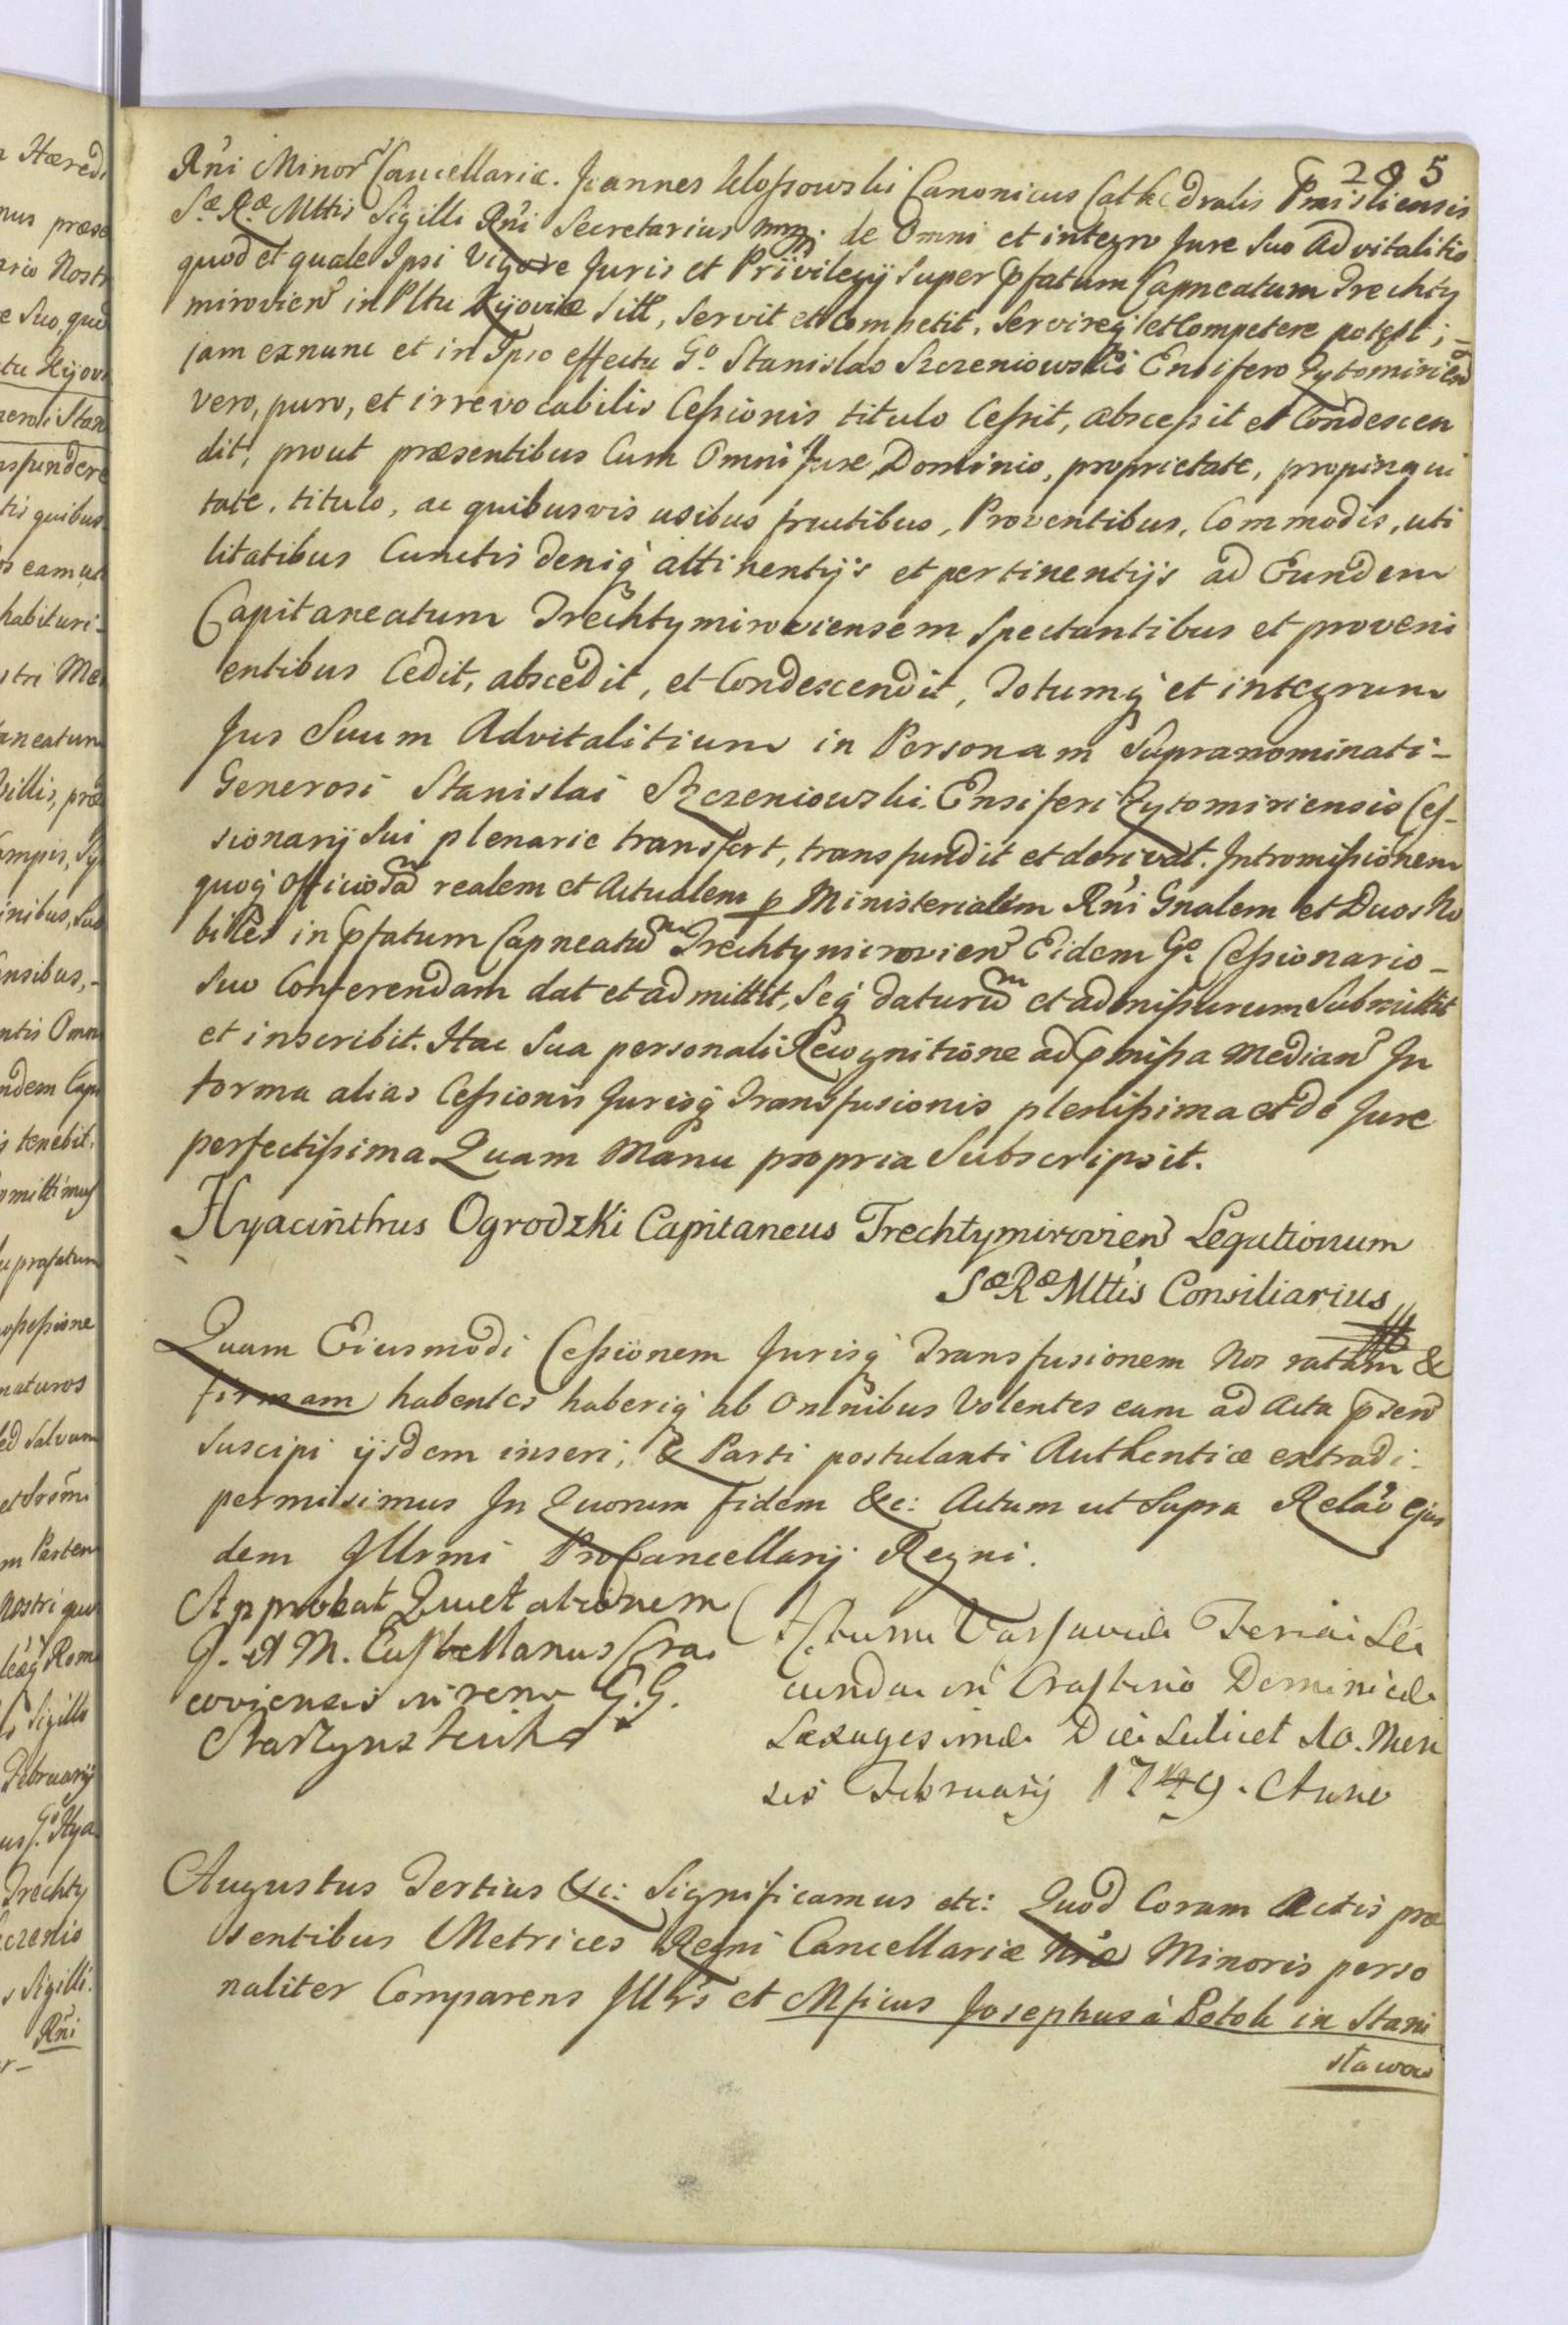 205
Rñi Minor Cancellariæ. Joannes Kłossowski Canonicus Cathedralis Præmisliensis
Sæ Ræ Mttis Sigilli Rñi Secretarius mpp. de Omni et integro Jure Suo Advitalitio
quod et quale Ipsi Vigore Juris et Privilegij Super pfatum Capneatum Trechty
mirovien in Pltu Kijoviæ Sitt, Servit et Competit, Servireq et Competere potest; –
jam exnunc et in Ipso effectu Go. Stanislao Szczeniowski Ensifero Zytomirien
vero, puro, et irrevocabilis Cessionis titulo Cessit, abscessit et Condescen
dit, prout præsentibus Cum Omni Jure, Dominio, proprietate, propinqui
tate, titulo, ac quibusvis usibus fructibus, Proventibus, Commodis, uti
litatibus Cunctis deniq attinentijs et pertinentijs ad Eundem
Capitaneatum Trechtymiroviensem Spectantibus et proveni
entibus Cedit, abscedit, et Condescendit, Totumq et integrum
Jus Suum Advitalitium in Personam Supranominati –
Generosi Stanislai Szczeniowski Ensiferi Zytomiriensis Ces–
sionarij Sui plenarie transfert, transfundit et derivat. Intromissionem
quoq officiosam realem et Actualem p Ministerialem Rñi Gnalem et Duos No
biles in pfatum Capneatum Trechtymirovien Eidem Go. Cessionario –
Suo Conferendam dat et admittit, Seq daturum et admissurum Submittit
et inscribit. Hac Sua personali Recognitione ad pmissa median In
forma alias Cessionis Jurisq Transfusionis plenissima et de Jure
perfectissima Quam Manu propria Subscripsit.
Hyacinthus Ogrodzki Capitaneus Trechtymirovien Legationum
Sæ Ræ Mttis Consiliarius
Quam Eiusmodi Cessionem Jurisq Transfusionem Nos ratam &
firmam habentes haberiq ab Omnibus Volentes eam ad Acta pzen
Suscipi ijsdem inseri, & Parti postulanti Authentice extradi
permisimus In Quorum fidem &c: Actum ut Supra Relao Ejus
dem Illrmi ProCancellarij Regni.
Approbat Quietationem
G. et M. Castellanus Cra
coviensis in rem G. G.
Starzynskich
Actum Varsaviæ Feria Se
cunda in Crastino Dominicæ
Sexagesimæ Die Scilicet 10. Men
sis Februarij 1749. Anno
Augustus Tertius &c: Significamus etc: Quod Coram Actis præ
sentibus Metrices Regni Cancellariæ Nræ Minoris perso
naliter Comparens Illrs et Mficus Josephus à Potok in Stani
sławow